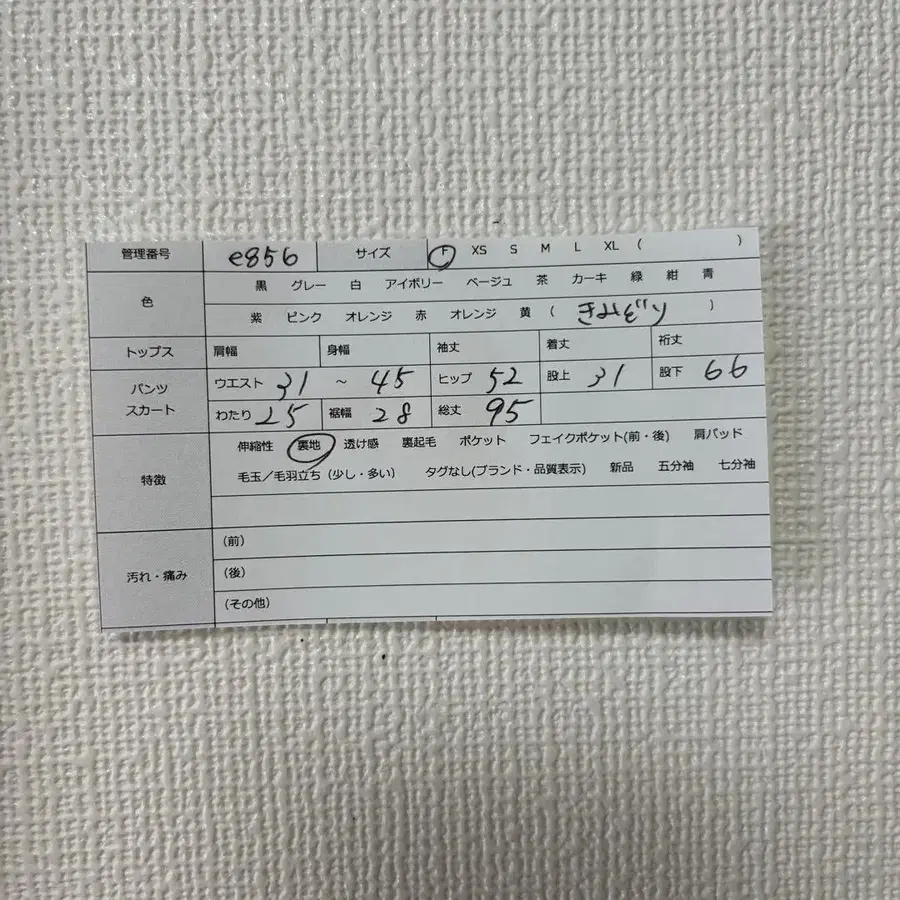 管理番号 e856 サイズ F XS S M L XL ( )
色 黒 グレー 白 アイボリー ベージュ 茶 カーキ 緑 紺 青
紫 ピンク オレンジ 赤 オレンジ 黄 ( きみどり )
トップス 肩幅 身幅 袖丈 着丈 裄丈
パンツ スカート ウエスト 31 ~ 45 ヒップ 52 股上 31 股下 66
わたり 25 裾幅 28 総丈 95
特徴 伸縮性 裏地 透け感 裏起毛 ポケット フェイクポケット(前・後) 肩パッド
毛玉/毛羽立ち (少し・多い) タグなし(ブランド・品質表示) 新品 五分袖 七分袖
汚れ・痛み (前)
(後)
(その他)